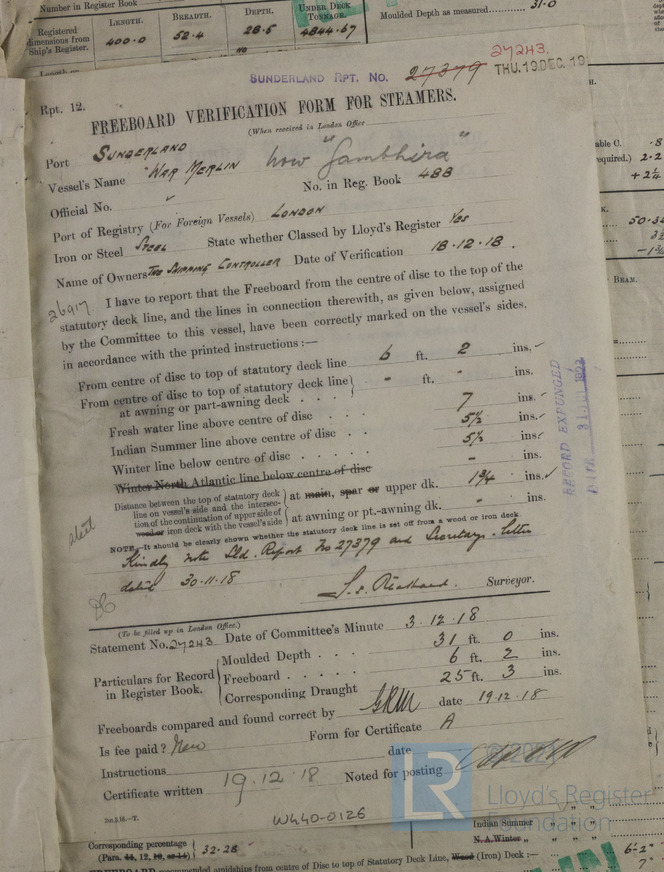 Number in Register Book
LENGTH. BREADTH. DEPTH. UNDER DECK TONNAGE. Moulded Depth as measured 31.0
Registered dimensions from Ship's Register. 400.0 52.4 28.5 4844.67
27243.
SUNDERLAND RPT. NO. 27379 THU. 19 DEC. 19
Rpt. 12.
FREEBOARD VERIFICATION FORM FOR STEAMERS.
(When received in London Office
Port SUNDERLAND
Vessel's Name "WAR MERLIN now "Gambhira"
Official No. No. in Reg. Book 488
Port of Registry (For Foreign Vessels) LONDON
Iron or Steel STEEL State whether Classed by Lloyd's Register Yes
Name of Owners THE SHIPPING CONTROLLER Date of Verification 18.12.18.
26917
I have to report that the Freeboard from the centre of disc to the top of the
statutory deck line, and the lines in connection therewith, as given below, assigned
by the Committee to this vessel, have been correctly marked on the vessel's sides.
in accordance with the printed instructions :—
From centre of disc to top of statutory deck line 6 ft. 2 ins.
From centre of disc to top of statutory deck line at awning or part-awning deck - ft. - ins.
Fresh water line above centre of disc 7 ins.
Indian Summer line above centre of disc 5½ ins.
Winter line below centre of disc 5½ ins.
Winter North Atlantic line below centre of disc - ins.
Distance between the top of statutory deck line on vessel's side and the intersection of the continuation of upper side of wood or iron deck with the vessel's side
at main, spar or upper dk. 1¾ ins.
at awning or pt.-awning dk. - ins.
steel
NOTE.—It should be clearly shown whether the statutory deck line is set off from a wood or iron deck.
Kindly note Sld. Report No 27379 and Secretary's letter
dated 30.11.18
Surveyor.
RECORD EXPUNGED
DATE
(To be filled up in London Office.)
Statement No. 27243 Date of Committee's Minute 3.12.18
Particulars for Record in Register Book.
Moulded Depth 31 ft. 0 ins.
Freeboard 6 ft. 2 ins.
Corresponding Draught 25 ft. 3 ins.
Freeboards compared and found correct by date 19.12.18
Is fee paid? Form for Certificate A
Instructions date
Certificate written 19.12.18 Noted for posting
W440-0126
LR Lloyd's Register Foundation
Corresponding percentage
(Para. 44, 12, 10, or 14) 32.28
Indian Summer
N.A. Winter
recommended amidships from centre of Disc to top of Statutory Deck Line, Wood (Iron) Deck :—
6'-2"
7"
able C. .8
required.) 2.2
+ 2¼
BEAM.